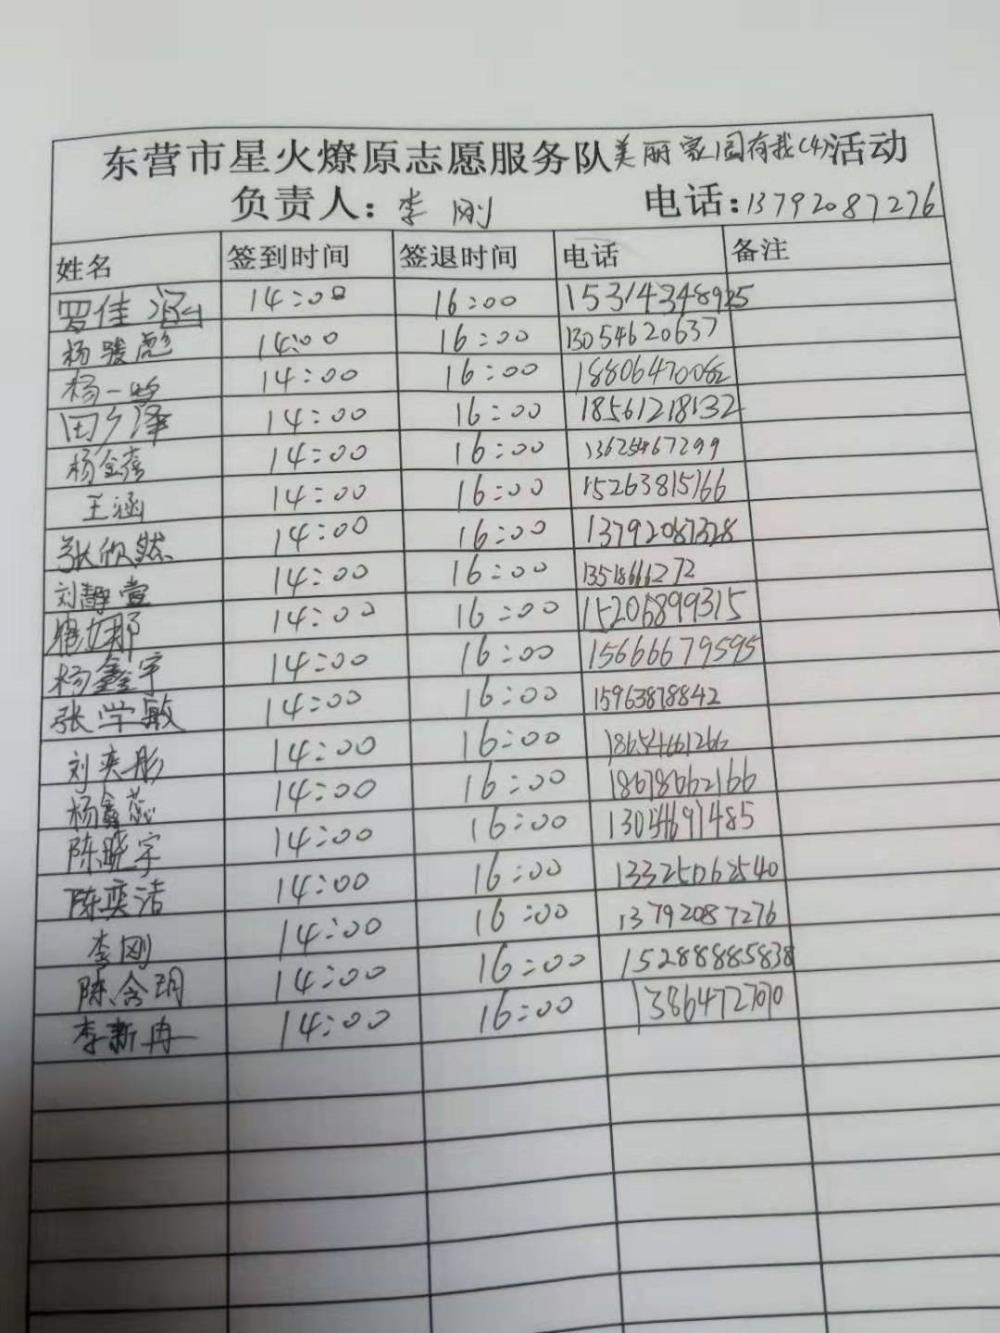 东营市星火燎原志愿服务队美丽家园有我(4)活动
负责人：李刚 电话:13792087276
姓名 签到时间 签退时间 电话 备注
罗佳涵 14:00 16:00 15314348925
杨骏彪 14:00 16:00 13054620637
杨一 14:00 16:00 18806470082
田夕泽 14:00 16:00 18561218132
杨金 14:00 16:00 13625467299
王涵 14:00 16:00 15263815166
张欣然 14:00 16:00 13792087328
刘静萱 14:00 16:00
娜 14:00 16:00 15206899315
杨鑫宇 14:00 16:00 15666679595
张学敏 14:00 16:00 15963878842
刘奕彤 14:00 16:00 18654661266
杨鑫蕊 14:00 16:00 18678662166
陈晓宇 14:00 16:00 13054691485
陈奕洁 14:00 16:00 13325062540
李刚 14:00 16:00 13792087276
陈含玥 14:00 16:00 15288885838
李新冉 14:00 16:00 13864727010